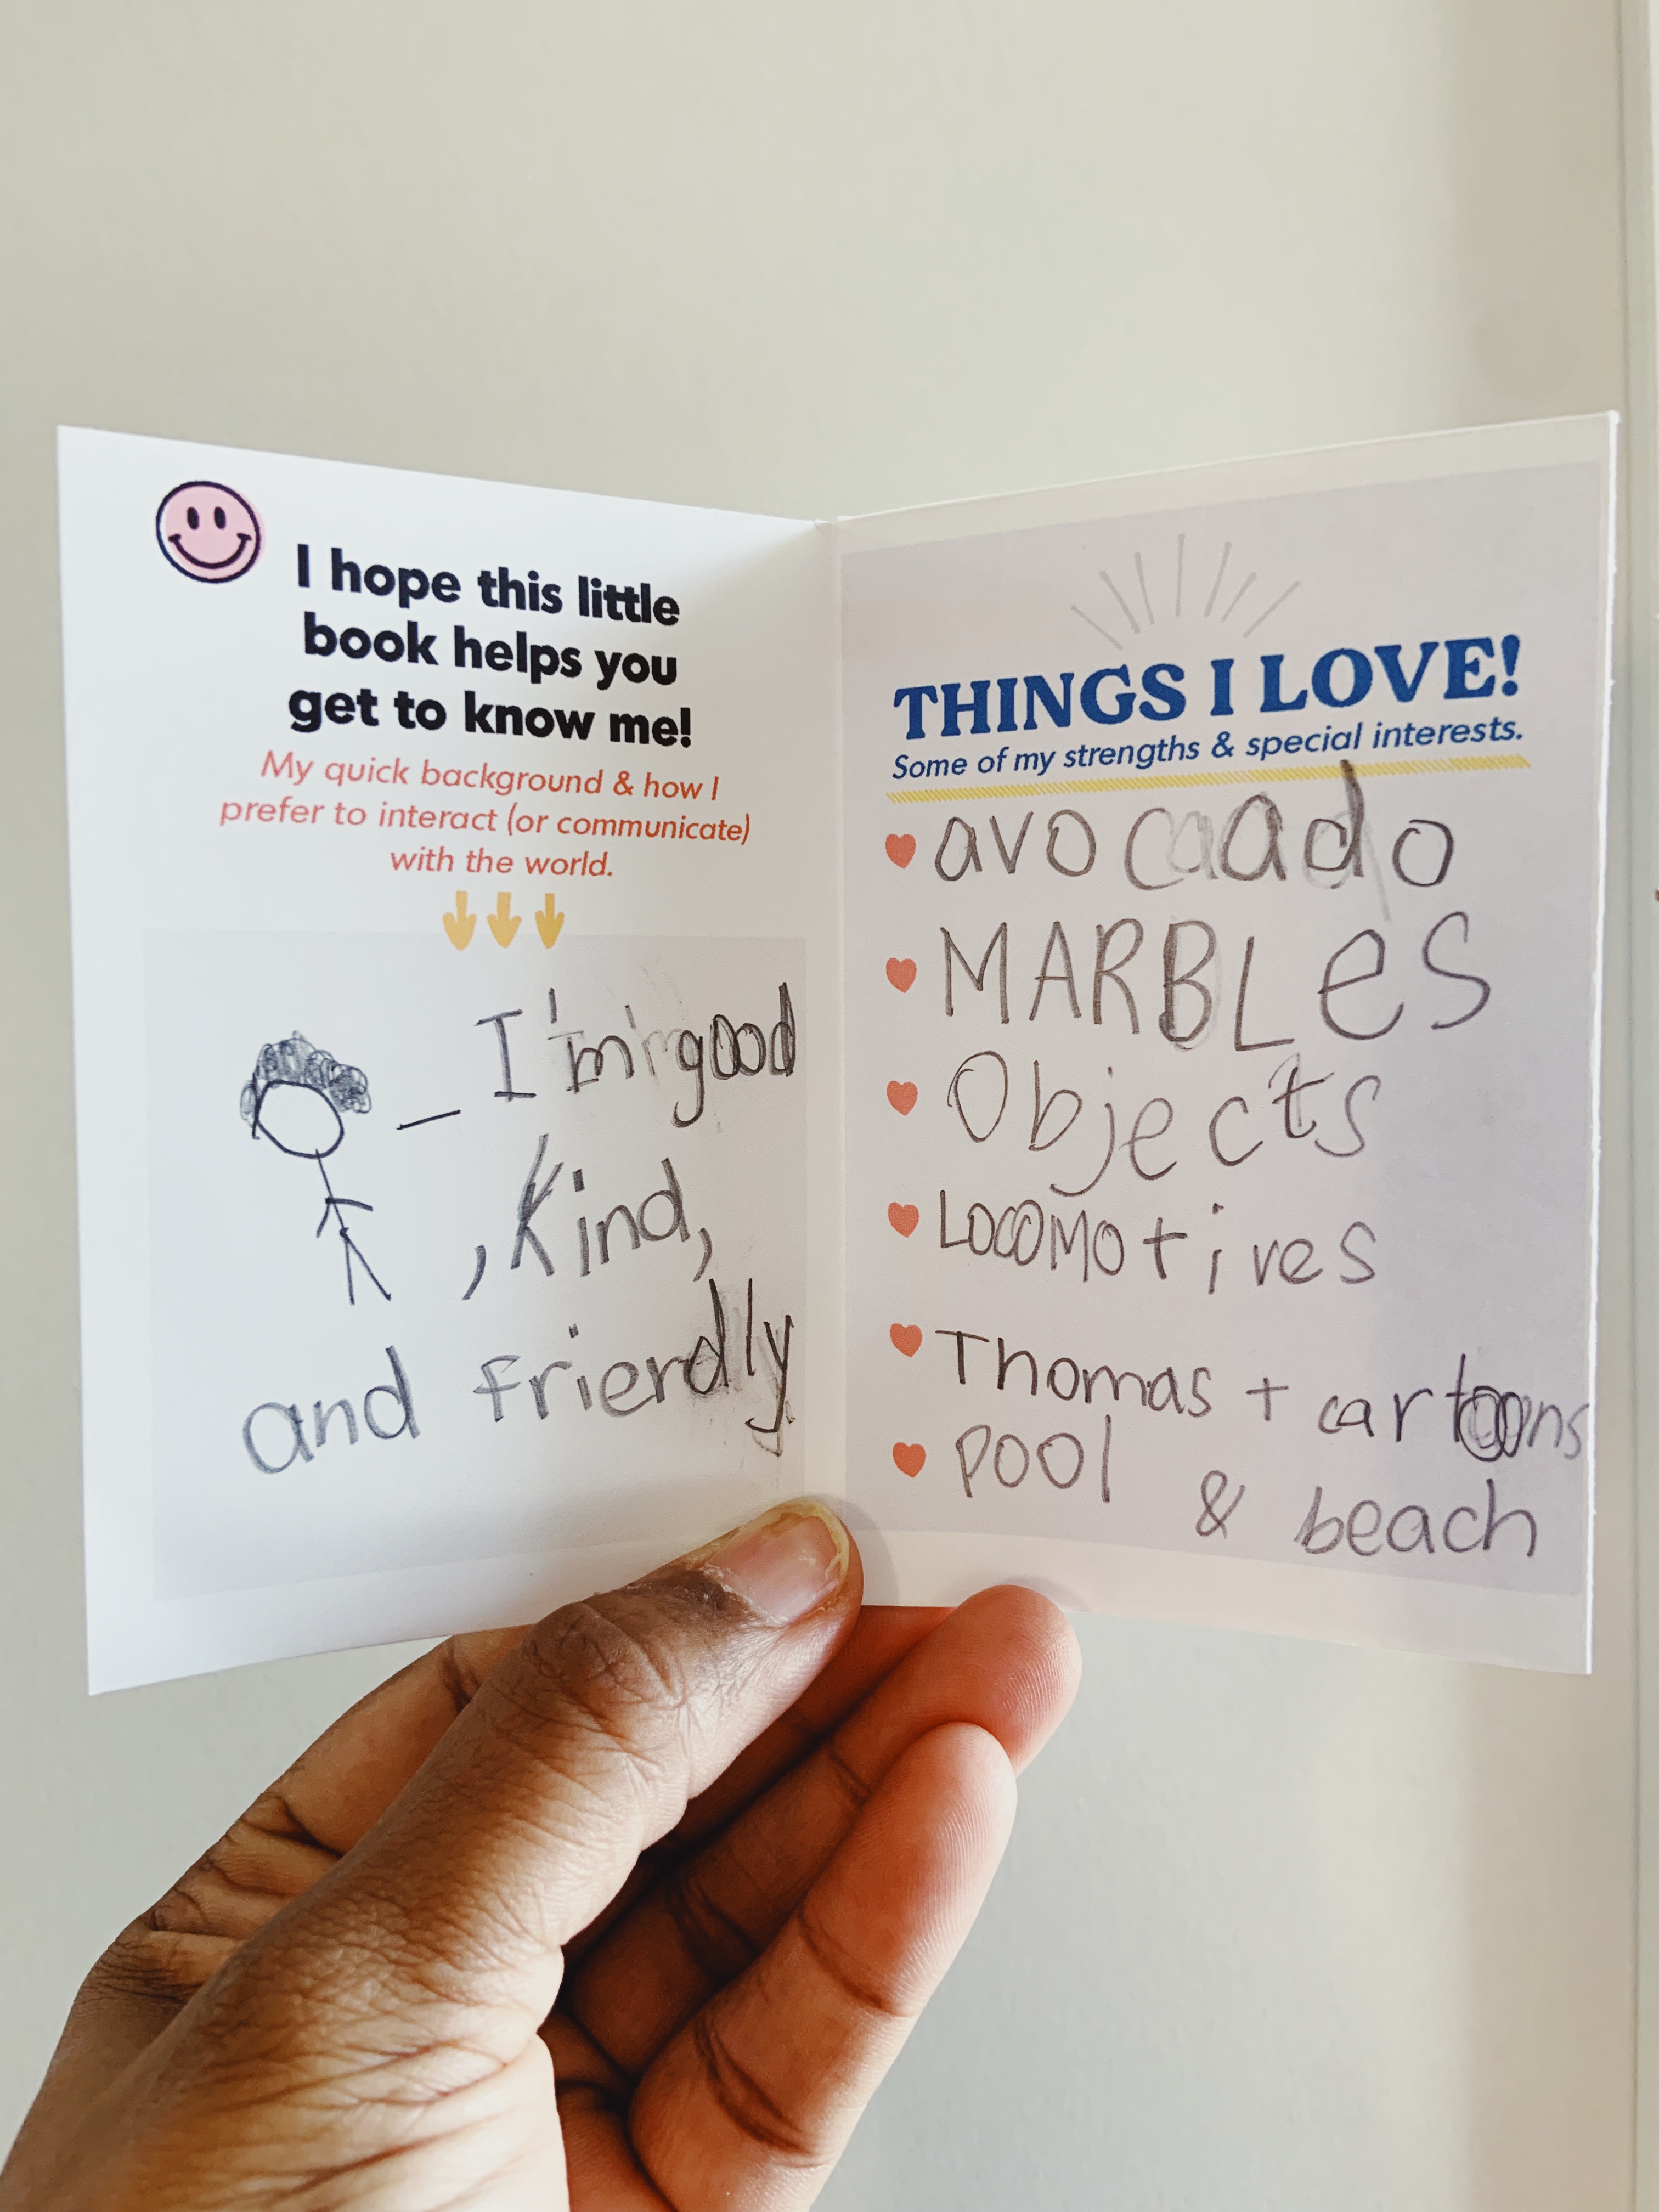 I hope this little
book helps you
get to know me!
My quick background & how I
prefer to interact (or communicate)
with the world.
I'm good
, kind,
and friendly
THINGS I LOVE!
Some of my strengths & special interests.
avocado
MARBLes
Objects
LOCOMOtives
Thomas + cartoons
pool
& beach